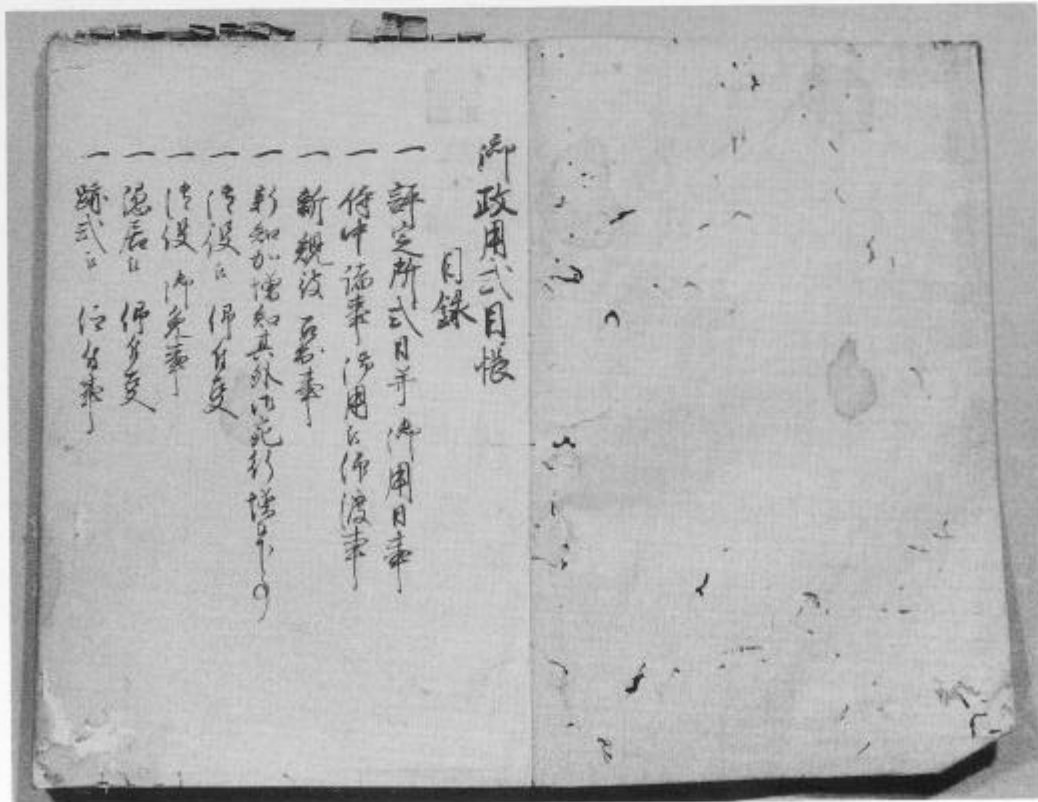 御政用式目帳
目録
一 評定所式日并御用日事
一 侍中諸事御用被仰渡事
一 新規被召出事
一 新知加増知其外御宛行増等事
一 諸役被仰付事
一 諸役御免事
一 隠居被仰付事
一 跡式被仰付事